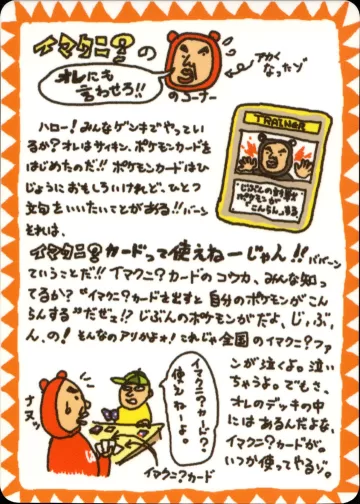 イマクニ?の
オレにも
言わせろ!!
のコーナー
アカく
なったゾ
ハロー!みんなゲンキでやってい
るか?オレはサイキン、ポケモンカードを
はじめたのだ!!ポケモンカードはひ
じょうにおもしろいけれど、ひとつ
文句をいいたいことがある!!ババーン
それは、
TRAINER
じぶんの対戦
ポケモンが
こんらんする
イマクニ?カードって使えねーじゃん!!ババババーン
ていうことだ!!イマクニ?カードのコウカ、みんな知っ
てるか?“イマクニ?カードを出すと自分のポケモンがこん
らんする”だぜェ!?じぶんのポケモンがだよ、じ、ぶ、
ん、の!そんなのアリかよォ!これじゃ全国のイマクニ?ファ
ンが泣くよ。泣い
ちゃうよ。でもさ、
オレのデッキの中
にはあるんだよな、
イマクニ?カードが。
いつか使ってやるゾ。
イマクニ?カード?
使えねーよ。
ナヌッ
イマクニ?カード